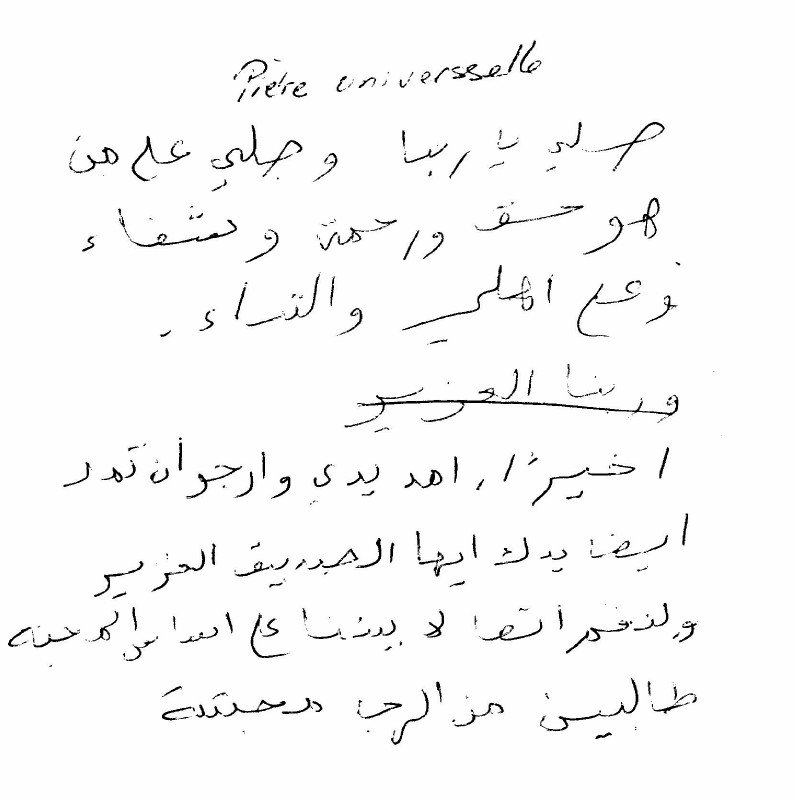 Pière universselle
صلي يا ربنا وصلي على من
هو حق ورحمة وشفاء
وعلى اهلي والتراء.
وربنا العزيز
اخيرًا، امد يدي وارجو أن تمد
ايضا يدك ايها الصديق العزيز
ولنقم اتحادا بيننا على اساس المحبة
طالبين من الرب محبته